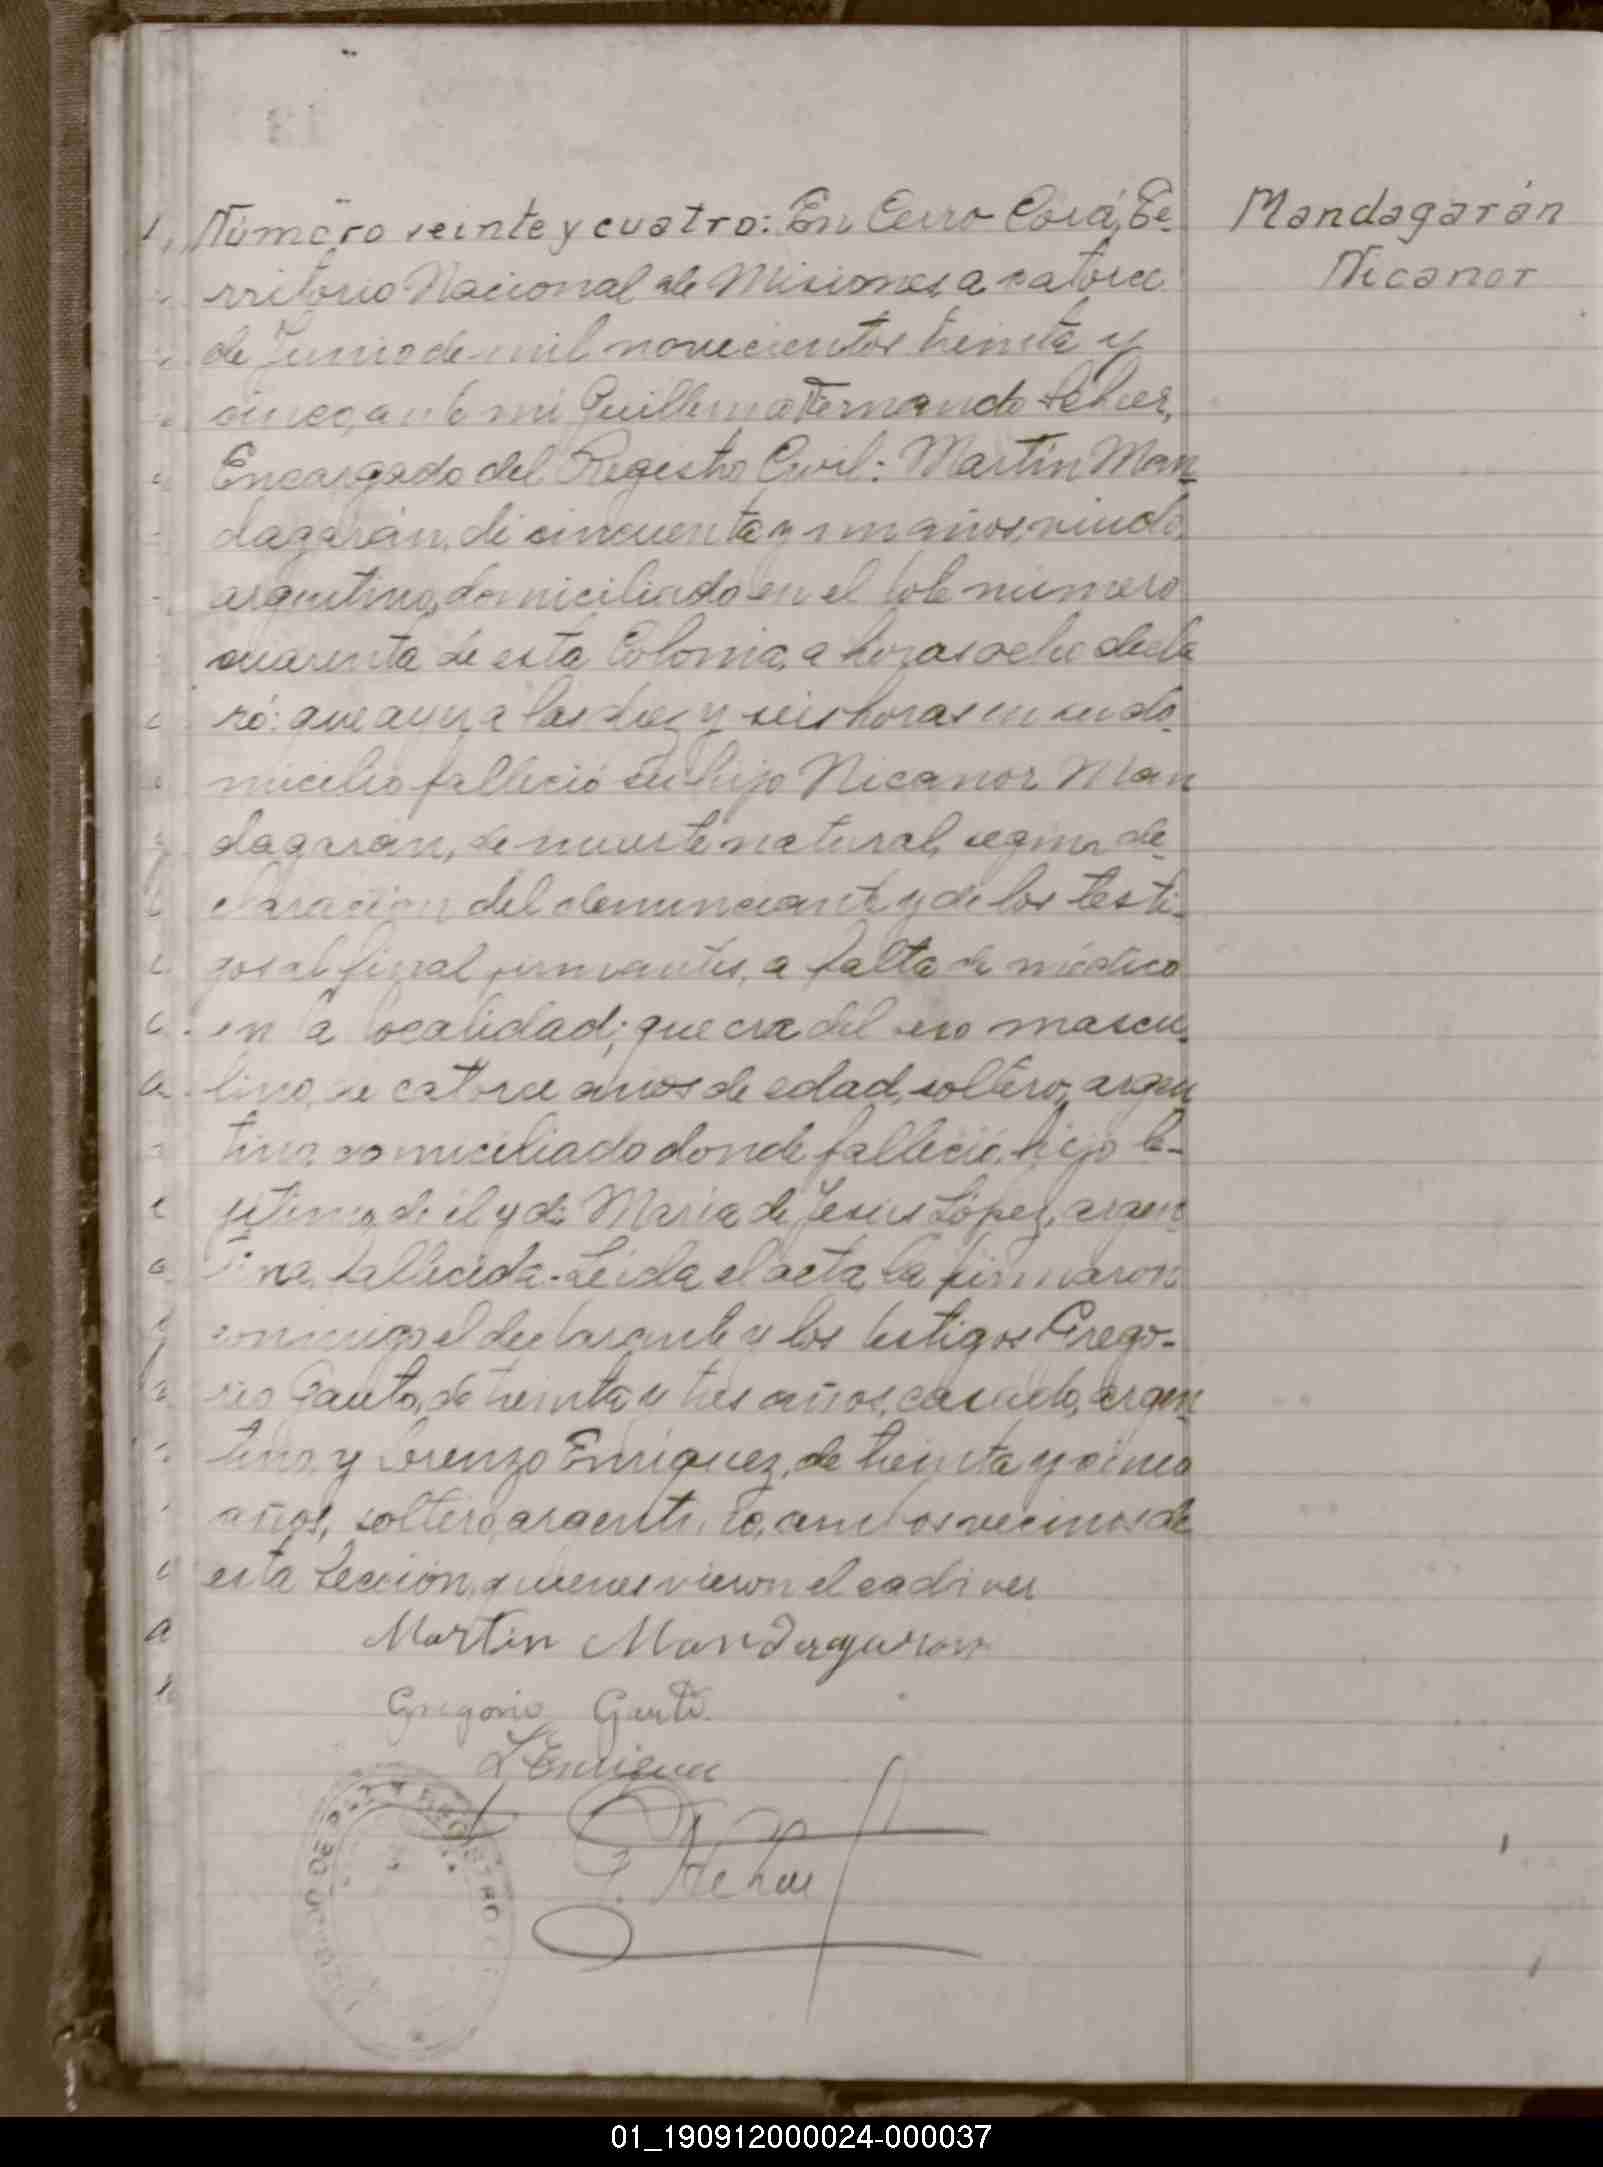 Número veinte y cuatro: En Cerro Corá, Te-
rritorio Nacional de Misiones, a catorce
de Junio de mil novecientos treinta y
cinco, ante mi Guillermo Fernando
Encargado del Registro Civil: Martín Man-
dagarán, de cincuenta y un años, viudo,
argentino, domiciliado en el lote número
cuarenta de esta Colonia, a horas ocho decla
ró: que ayer a las diez y seis horas en su do-
micilio falleció su hijo Nicanor Man
dagarán, de muerte natural, segun de-
claracion del denunciante y de los testi-
gos al final firmantes, a falta de médico
en la localidad; que era del sexo mascu-
lino, de catorce años de edad, soltero, argen
tino domiciliado donde falleció, hijo le-
gitimo de él y de María de Jesus López, argen
tina, fallecida. Leida el acta la firmaron
conmigo el declarante y los testigos Grego-
rio Gauto, de treinta y tres años, casado, argen
tino y Lorenzo Enriquez, de treinta y cinco
años, soltero, argentino, ambos vecinos de
esta Sección, quienes vieron el cadáver
Martin Mandagaran
Gregorio Gauto
L Enriquez
G.
REGISTRO
Mandagarán
Nicanor
01_190912000024-000037